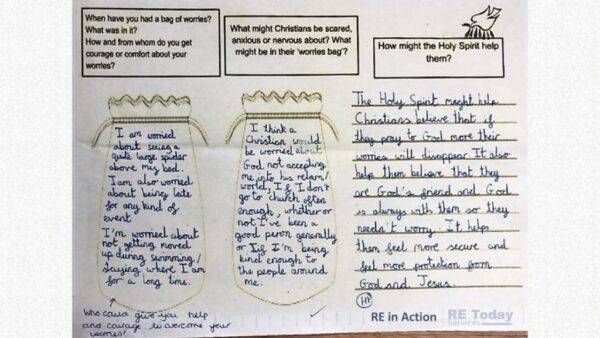 When have you had a bag of worries?
What was in it?
How and from whom do you get
courage or comfort about your
worries?
What might Christians be scared,
anxious or nervous about? What
might be in their 'worries bag'?
How might the Holy Spirit help
them?
I am worried
about seeing a
quite large spider
above my bed.
I am also worried
about being late
for any kind of
event
I'm worried about
not getting moved
up during swimming/
staying where I am
for a long time.
I think a
Christian would
be worried about
God not accepting
me into his relam/
world, If I don't
go to church often
enough, whether or
not I've been a
good person generally
or If I'm being
kind enough to
the people around
me.
The Holy Spirit might help
Christians believe that if
they pray to God more their
worries will disappear. It also
help them believe that they
are God's friend and God
is always with them so they
needn't worry. It helps
them feel more secure and
feel more protection from
God and Jesus.
Who could give you help
and courage to overcome your
worries?
RE in Action
RE Today
Services